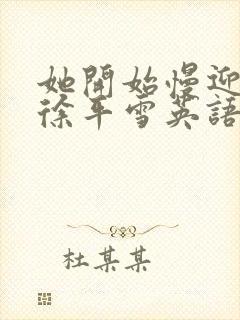 她開始慢迎
徐平雪英語
杜某某